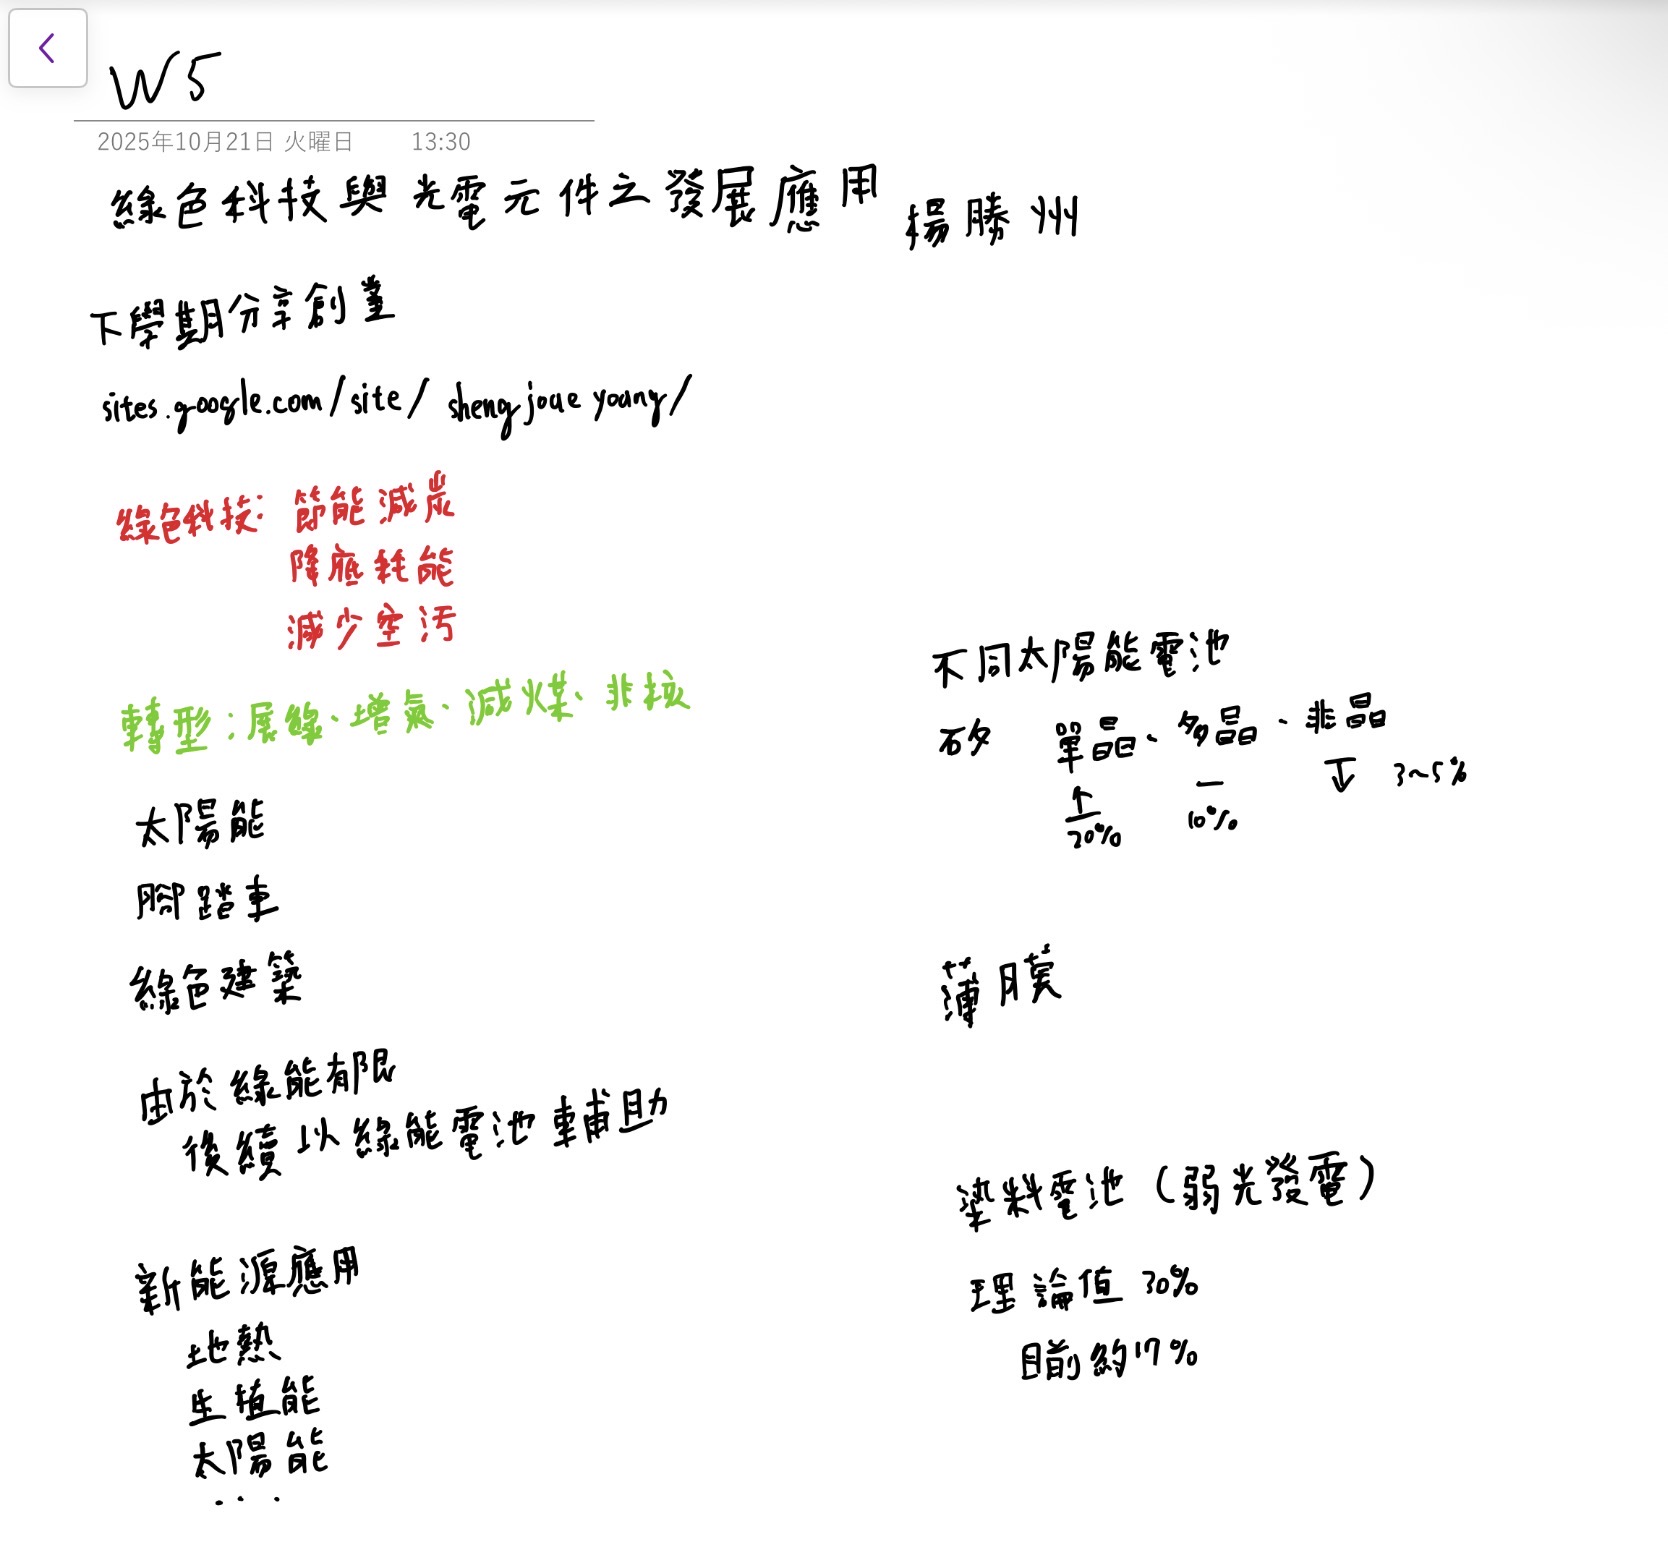 W5
2025年10月21日 火曜日 13:30
綠色科技與光電元件之發展應用 楊勝州
下學期分享創業
sites.google.com/site/shengjoueyoung/
綠色科技: 節能減炭
降底耗能
減少空污
轉型:展綠、增氣、減煤、非核
太陽能
腳踏車
綠色建築
由於綠能有限
後續以綠能電池輔助
新能源應用
地熱
生植能
太陽能
...
不同太陽能電池
矽 單晶、多晶、非晶
↑ — ↓ 3~5%
20% 10%
薄膜
染料電池(弱光發電)
理論值 30%
目前約17%